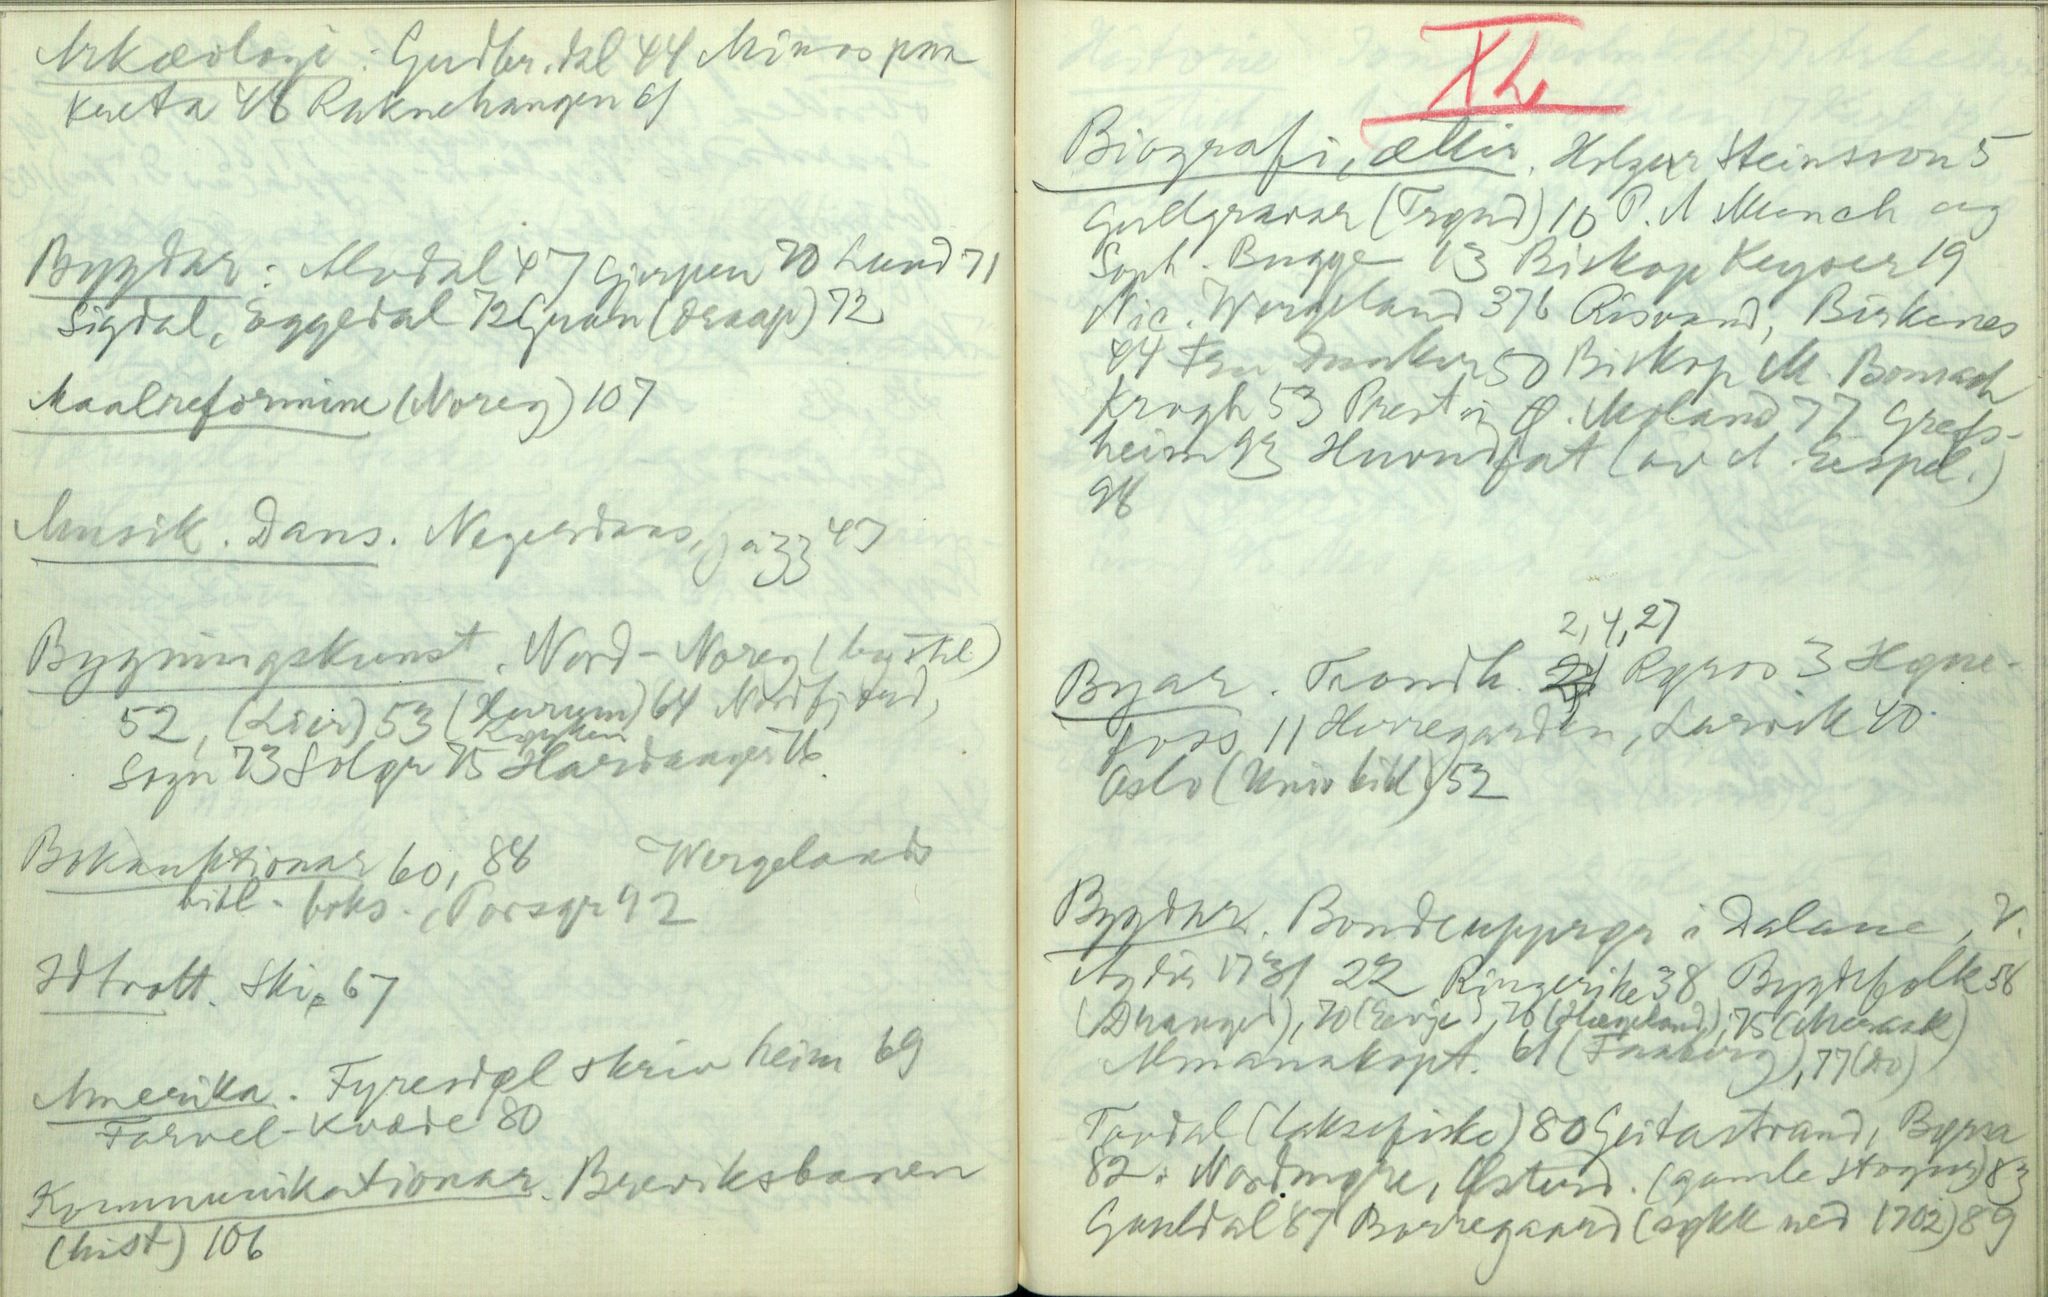 Arkæologi: Gudbr. dal 44 Minos paa
Kreta 48 Raknehaugen 61
Bygdar: Alvdal 47 Gjerpen 70 Lund 71
Sigdal, Eggedal 72 Gran (draap) 72
Maalreformine (Noreg) 107
Musik. Dans. Negerdans, ja 33 47
Bygningskunst. Nord-Noreg (bystil)
52, (Lier) 53 (Hurum) 64 Nordfjord,
Røyken
Sogn 73 Solør 75 Hardanger 76
Bokauktionar 60, 88 Wergelands
bibl. boks., Porsgr 92
Idtrott. Ski 67
Amerika. Fyresdøl skriv heim 69
Farvel-kvæde 80
Kommunikationar. Breviksbanen
(hist) 106
XL
Biografi, ættir. Holger Steinsson 5
Gullgravar (Trysil) 10 P. A Munch og
Soph. Bugge 13 Biskop Keyser 19
Nic. Wergeland 376 Risvand, Birkenes
44 50 Biskop M. Bonsach
Krogh 53 Prest i Ø. Moland 77 Grefs-
heim 93 Huvudfat (av A. Eispel.)
98
2, 4, 27
Byar. Trondh. Røros 3 Høne-
foss 11 Herregarden, Larvik 40
Oslo (Univ bibl) 52
Bygdar. Bondeupprør i Dalane, V.
Agder 1731 22 Ringerike 38 Bygdefolk 58
(Drangedl), 70 (Eevje), 70 (Hægeland), 75 (Mersask)
Almanakopt. 61 (Faaberg), 77 (do)
Tovdal (laksefiske) 80 Geitastrand, Byrn
82: Nordmøre, Østerd. (gamle stogur) 83
Gauldal 87 Borregaard (søkk ned 1702) 89